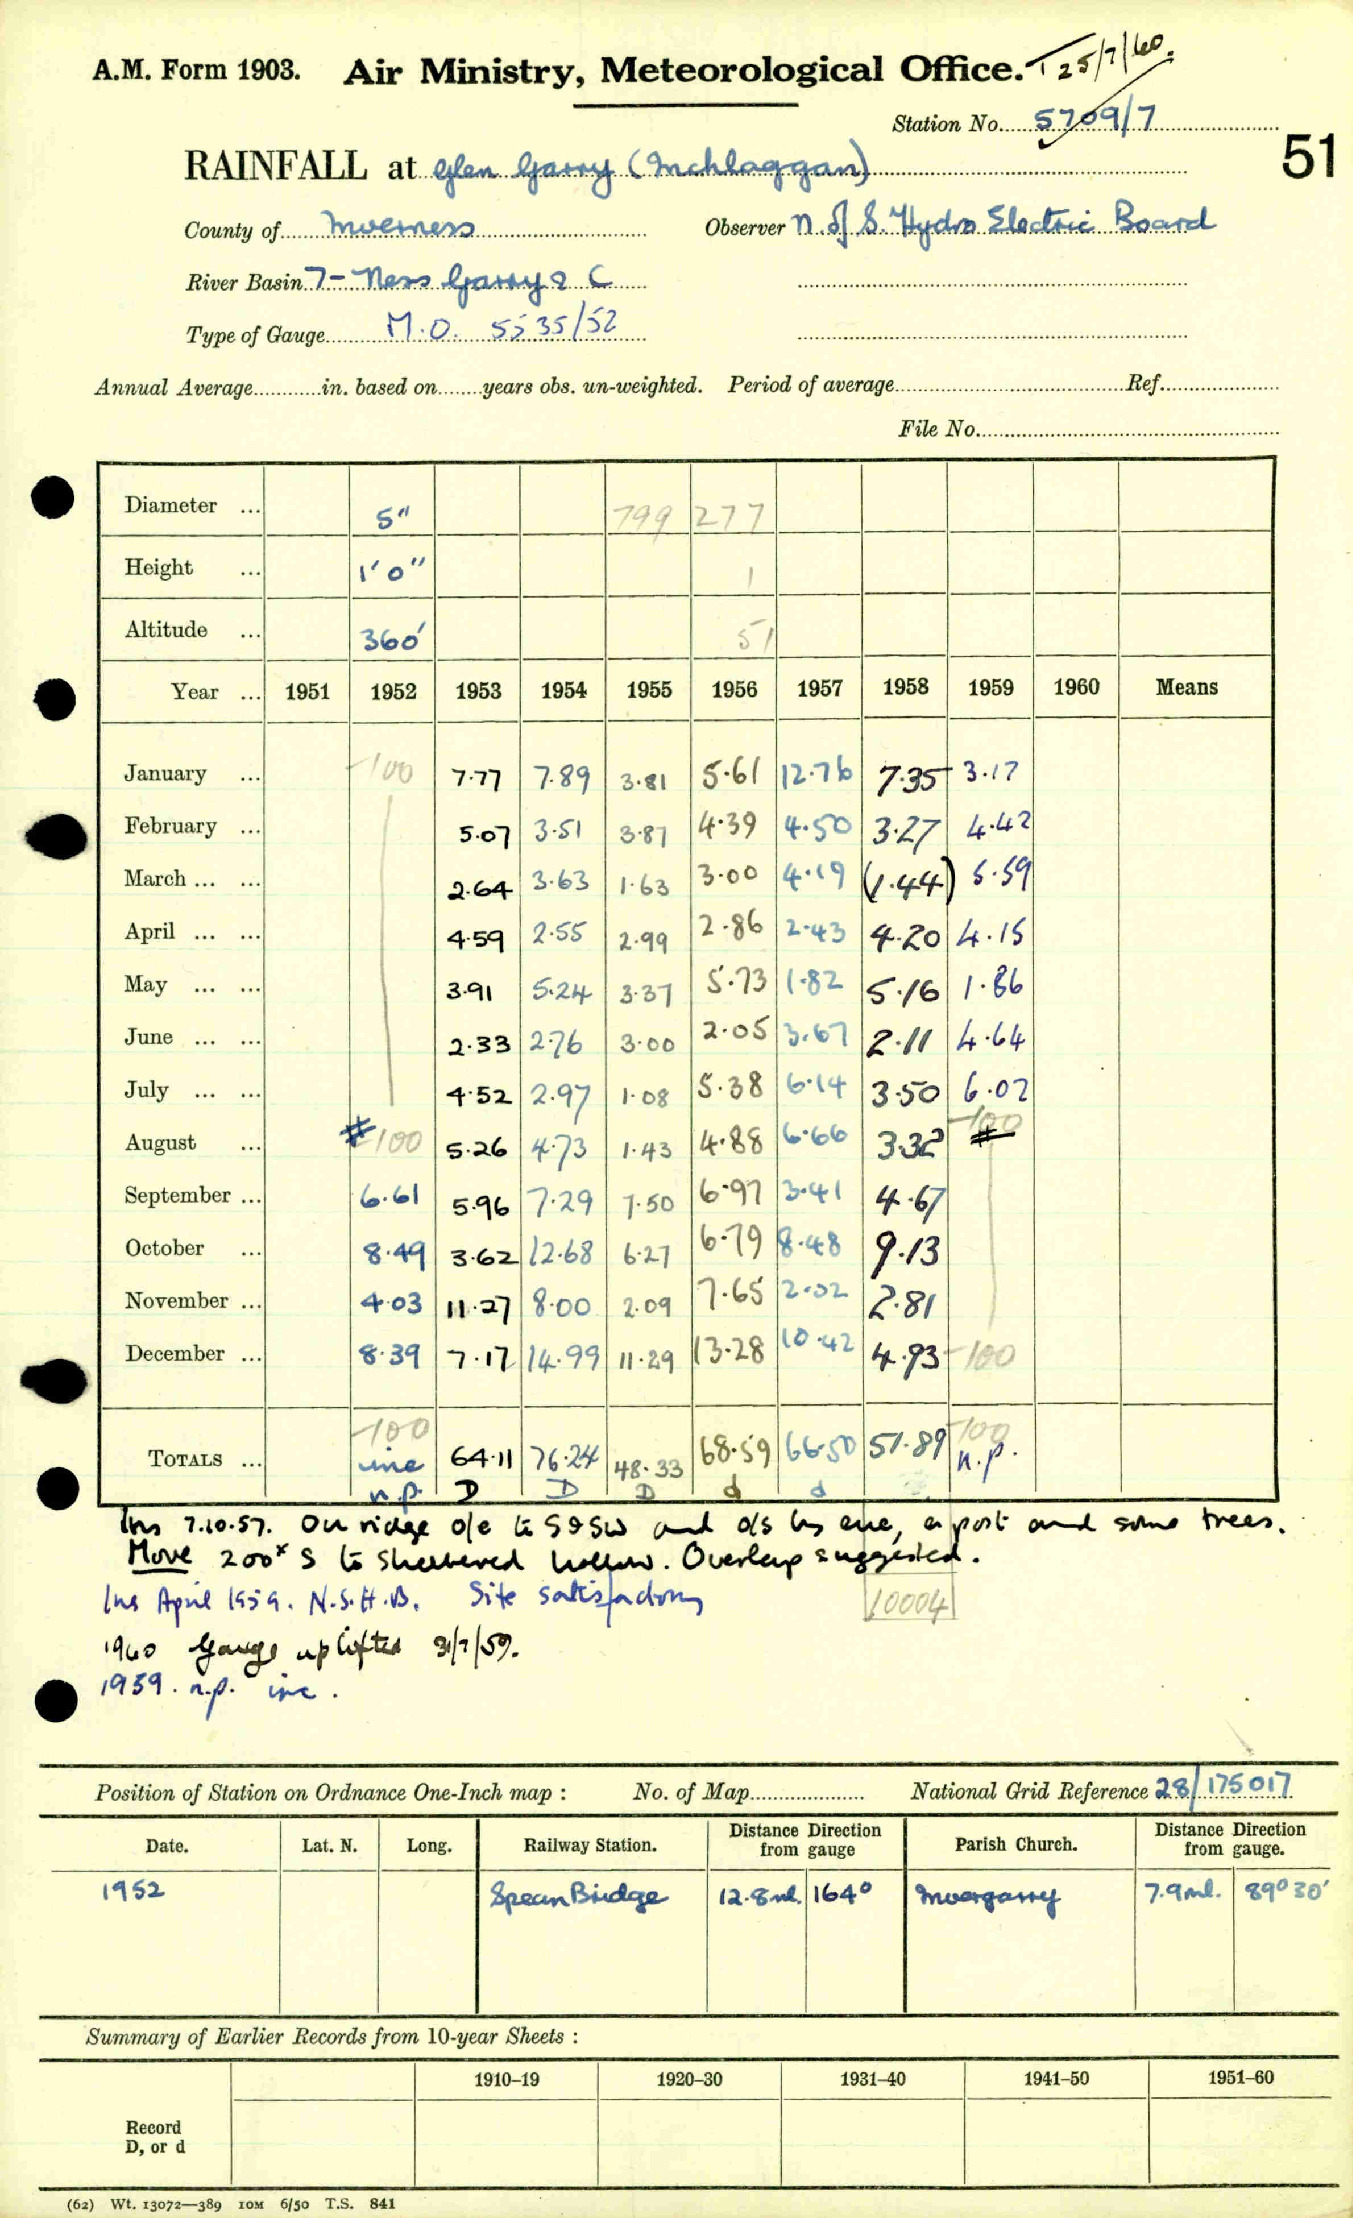 A.M. Form 1903. Air Ministry, Meteorological Office. T 25/7/60.
Station No. 5709/7
51
RAINFALL at Glen Garry (Inchlaggan)
County of Inverness Observer N. of S. Hydro Electric Board
River Basin 7- Ness Garry & C
Type of Gauge M.O. 5535/52
Annual Average in. based on years obs. un-weighted. Period of average Ref.
File No.
Diameter ... 5" 799 277
Height ... 1'0" 1
Altitude ... 360' 51
Year ... 1951 1952 1953 1954 1955 1956 1957 1958 1959 1960 Means
January ... -100 7.77 7.89 3.81 5.61 12.76 7.35 3.17
February ... 5.07 3.51 3.87 4.39 4.50 3.27 4.42
March ... ... 2.64 3.63 1.63 3.00 4.19 (1.44) 5.59
April ... ... 4.59 2.55 2.99 2.86 2.43 4.20 4.15
May ... ... 3.91 5.24 3.37 5.73 1.82 5.16 1.86
June ... ... 2.33 2.76 3.00 2.05 3.67 2.11 4.64
July ... ... 4.52 2.97 1.08 5.38 6.14 3.50 6.02
August ... # -100 5.26 4.73 1.43 4.88 6.66 3.32 -100 #
September ... 6.61 5.96 7.29 7.50 6.97 3.41 4.67
October ... 8.49 3.62 12.68 6.27 6.79 8.48 9.13
November ... 4.03 11.27 8.00 2.09 7.65 2.02 2.81
December ... 8.39 7.17 14.99 11.29 13.28 10.42 4.93 -100
-100 -100
TOTALS ... inc 64.11 76.24 48.33 68.59 66.50 51.89 n.p.
n.p. D D D d d
Ins 7.10.57. On ridge o/e to S&SW and o/s by one, a post and some trees.
Move 200x S to sheltered hollow. Overlap suggested.
Ins April 1959. N.S.H.B. Site satisfactory
10004
1960 Gauge uplifted 31/7/59.
1959. n.p. inc.
Position of Station on Ordnance One-Inch map : No. of Map National Grid Reference 28/175017
Date. Lat. N. Long. Railway Station. Distance Direction from gauge Parish Church. Distance Direction from gauge.
1952 Spean Bridge 12.8ml. 164° Invergarry 7.9ml. 89°30'
Summary of Earlier Records from 10-year Sheets :
1910–19 1920–30 1931–40 1941–50 1951–60
Record
D, or d
(62) Wt. 13072—389 10M 6/50 T.S. 841